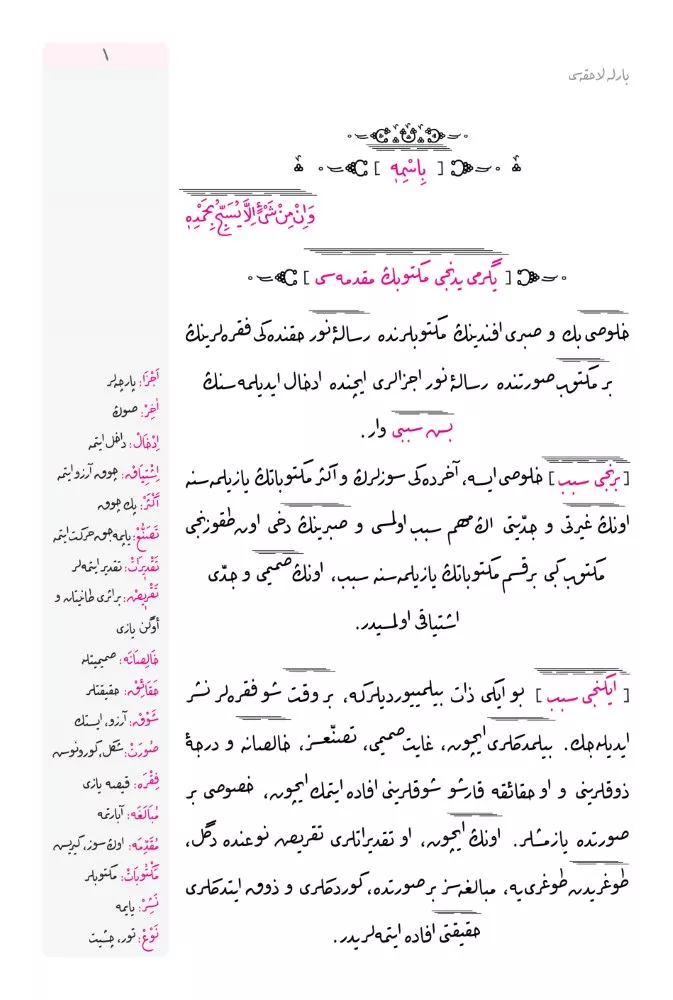 ١
بارلە لاحقەسی
[ بِاسْمِهٖ ]
وَاِنْ مِنْ شَیْءٍ اِلَّا یُسَبِّحُ بِحَمْدِهٖ
[ یگرمی یدنجی مکتوبڭ مقدمەسی ]
خلوصی بك و صبری افندینڭ مکتوبلرندە رسالۀ نور حقندەکی فقرەلرینڭ
بر مکتوب صورتندە رسالۀ نور اجزالری ایچندە ادخال ایدیلمەسنڭ
بش سببی وار.
[ برنجی سبب ] خلوصی ایسە، آخردەکی سوزلرڭ و اکثر مکتوباتڭ یازیلمەسنە
اونڭ غیرتی و جدّیتی اڭ مهم سبب اولمسی و صبرینڭ دخی اون طقوزنجی
مکتوب کبی برقسم مکتوباتڭ یازیلمەسنە سبب، اونڭ صمیمی و جدّی
اشتیاقی اولمسیدر.
[ ایکنجی سبب ] بو ایکی ذات بیلمییوردیلرکە، بر وقت شو فقرەلر نشر
ایدیلەجك. بیلمدکلری ایچون، غایت صمیمی، تصنّعسز، خالصانە و درجۀ
ذوقلرینی و او حقائقە قارشو شوقلرینی افادە ایتمك ایچون، خصوصی بر
صورتدە یازمشلر. اونڭ ایچون، او تقدیراتلری تقریض نوعندە دگل،
طوغریدن طوغری‌یە، مبالغەسز بر صورتدە، کوردکلری و ذوق ایتدکلری
حقیقتی افادە ایتمەلریدر.
اَجْزَا: پارچەلر
اٰخِرْ: صوڭ
اِدْخَالْ: داخل ایتمە
اِشْتِیَاقْ: چوق آرزو ایتمە
اَکْثَرْ: پك چوق
تَصَنُّعْ: یاپمەجق حرکت ایتمە
تَقْدِیرَاتْ: تقدیر ایتمەلر
تَقْرِیضْ: بر اثری طانیتان و
اوگن یازی
خَالِصَانَە: صمیمیتلە
حَقَائِقْ: حقیقتلر
شَوْقْ: آرزو، ایستك
صُورَتْ: شکل، کورونوش
فِقْرَە: قیصە یازی
مُبَالَغَە: آبارتمە
مُقَدِّمَە: اوڭ سوز، کیریش
مَکْتُوبَاتْ: مکتوبلر
نَشِرْ: یایمە
نَوْعْ: تور، چشیت